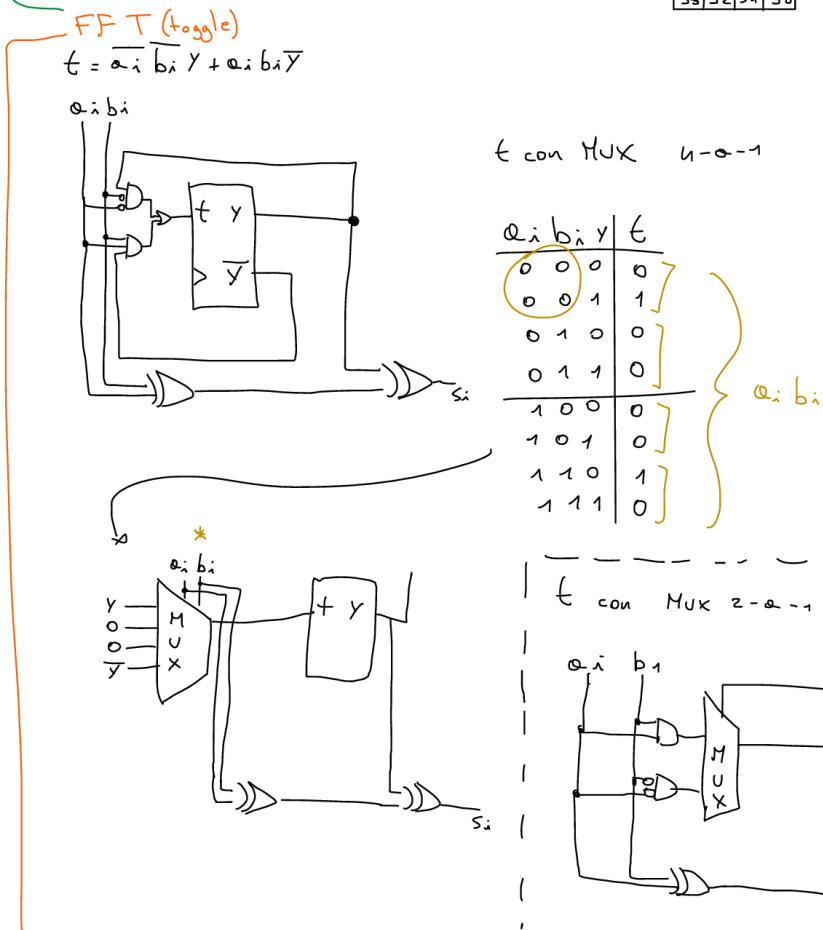 S3 S2 S1 S0
FF T (toggle)
t = a̅i̅ b̅i̅ y + ai bi y̅
ai bi
t y
y̅
si
t con MUX 4-a-1
ai bi y t
0 0 0 0
0 0 1 1
0 1 0 0
0 1 1 0
1 0 0 0
1 0 1 0
1 1 0 1
1 1 1 0
ai bi
*
ai bi
y
0
0
y̅
MUX
t y
si
t con MUX 2-a-1
ai b1
MUX